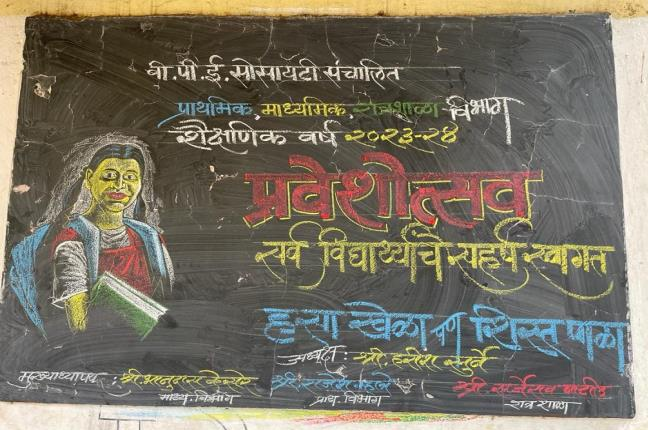 बी.पी.ई.सोसायटी संचालित
प्राथमिक, माध्यमिक, रात्रशाळा विभाग
शैक्षणिक वर्ष २०२३-२४
प्रवेशोत्सव
सर्व विद्यार्थ्यांचे सहर्ष स्वागत
हसा खेळा पण शिस्त पाळा
अध्यक्ष : श्री. हरीष सुर्वे
मुख्याध्यापक : श्री.
माध्य. विभाग प्राथ. विभाग रात्र शाळा